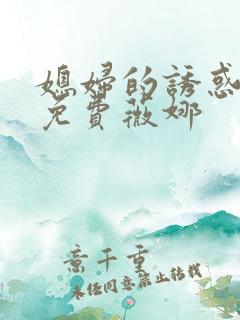 媳婦的誘惑
免費薇娜
意千重
未任同意禁止转载